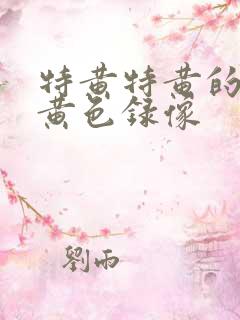 特黄特黄的
黄色録像
劉雨